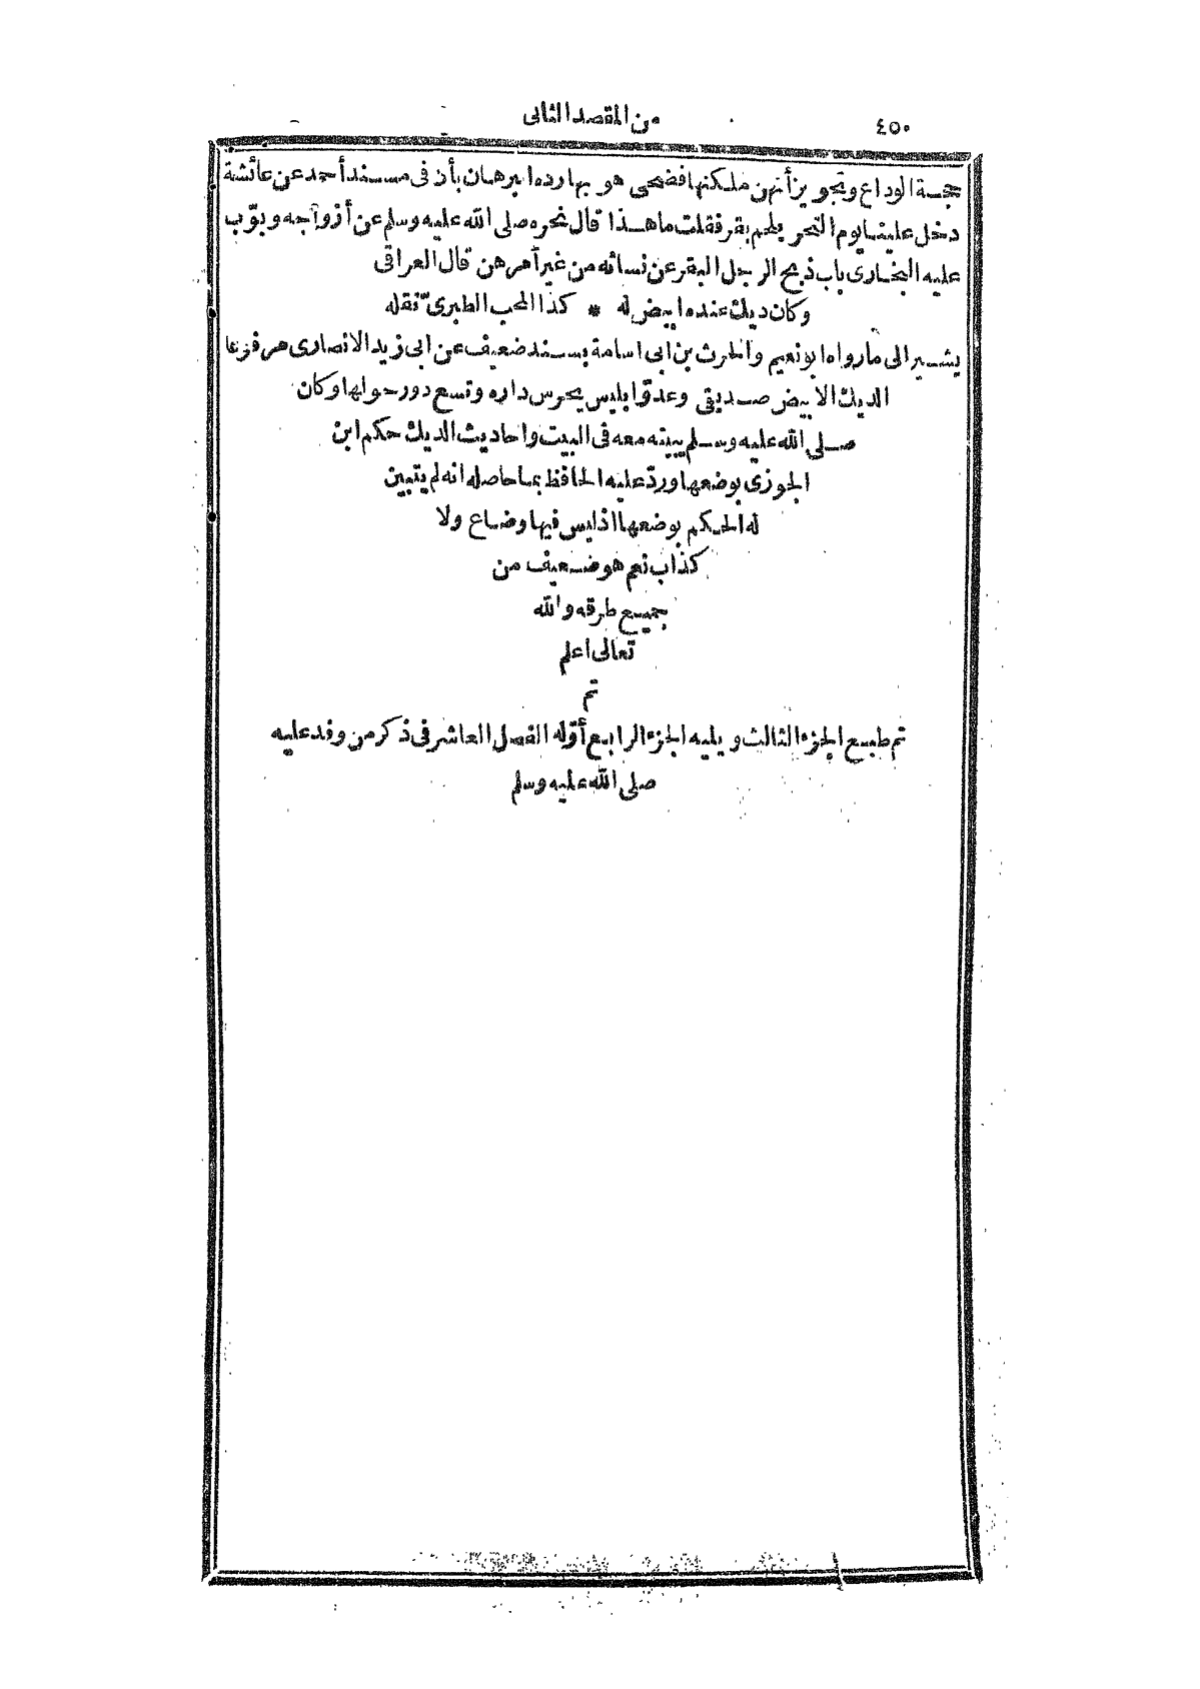 ٤٥٠
من المقصد الثانى
حجة الوداع وتجويز أنهن ملكنها فضحى هو بها رده البرهان بأن فى مسند أحمد عن عائشة
دخل علينا يوم النحر بلحم بقر فقلت ما هذا قال نحره صلى الله عليه وسلم عن أزواجه وبوّب
عليه البخارى باب ذبح الرجل البقر عن نسائه من غير أمرهن قال العراقى
وكان ديك عنده ابيض له * كذا المحب الطبرىّ نقله
يشير الى ما رواه ابو نعيم والحرث بن ابى اسامة بسند ضعيف عن ابى زيد الانصارى مرفوعا
الديك الابيض صديقى وعدوّ ابليس يحرس داره وتسع دور حولها وكان
صلى الله عليه وسلم يبيته معه فى البيت واحاديث الديك حكم ابن
الجوزى بوضعها وردّ عليه الحافظ بما حاصله انه لم يتبين
له الحكم بوضعها اذ ليس فيها وضاع ولا
كذاب نعم هو ضعيف من
جميع طرقه والله
تعالى اعلم
تم
تم طبع الجزء الثالث ويليه الجزء الرابع أوّله الفصل العاشر فى ذكر من وفد عليه
صلى الله عليه وسلم